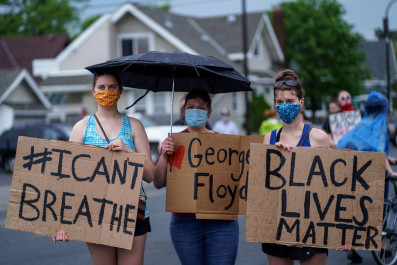 #ICANT
BREATHE
George
Floyd
BLACK
LIVES
MATTER